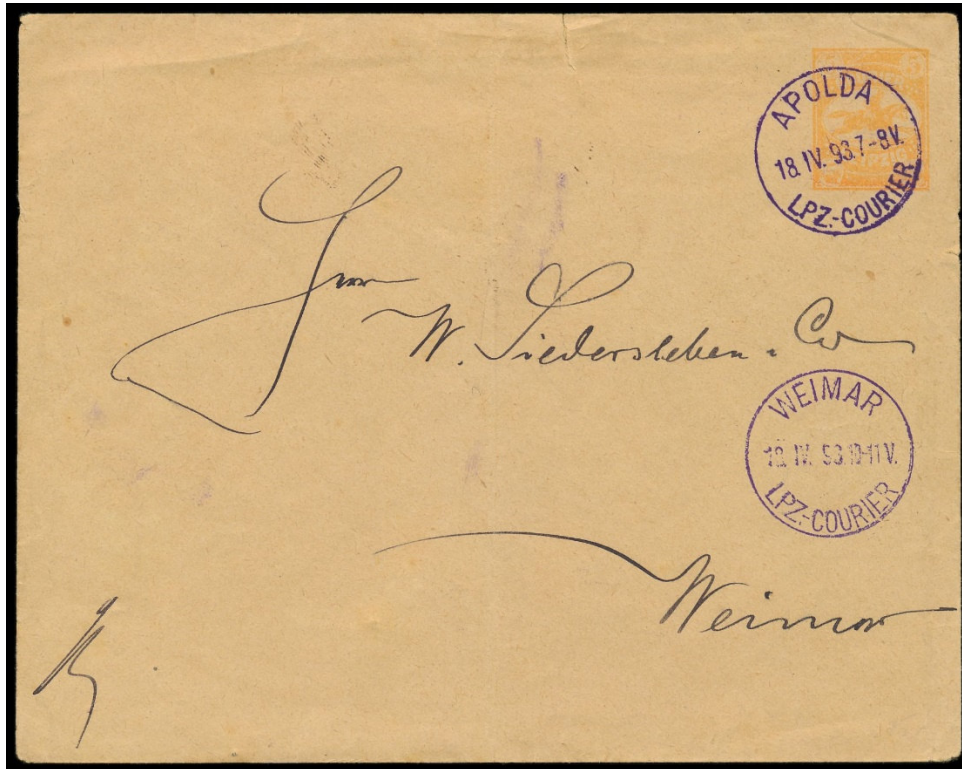 3
APOLDA
18.IV.93.7-8V.
LPZ.-COURIER
Herrn
W. Liedersleben & Co
WEIMAR
18.IV.93.10-11V.
LPZ.-COURIER
Weimar